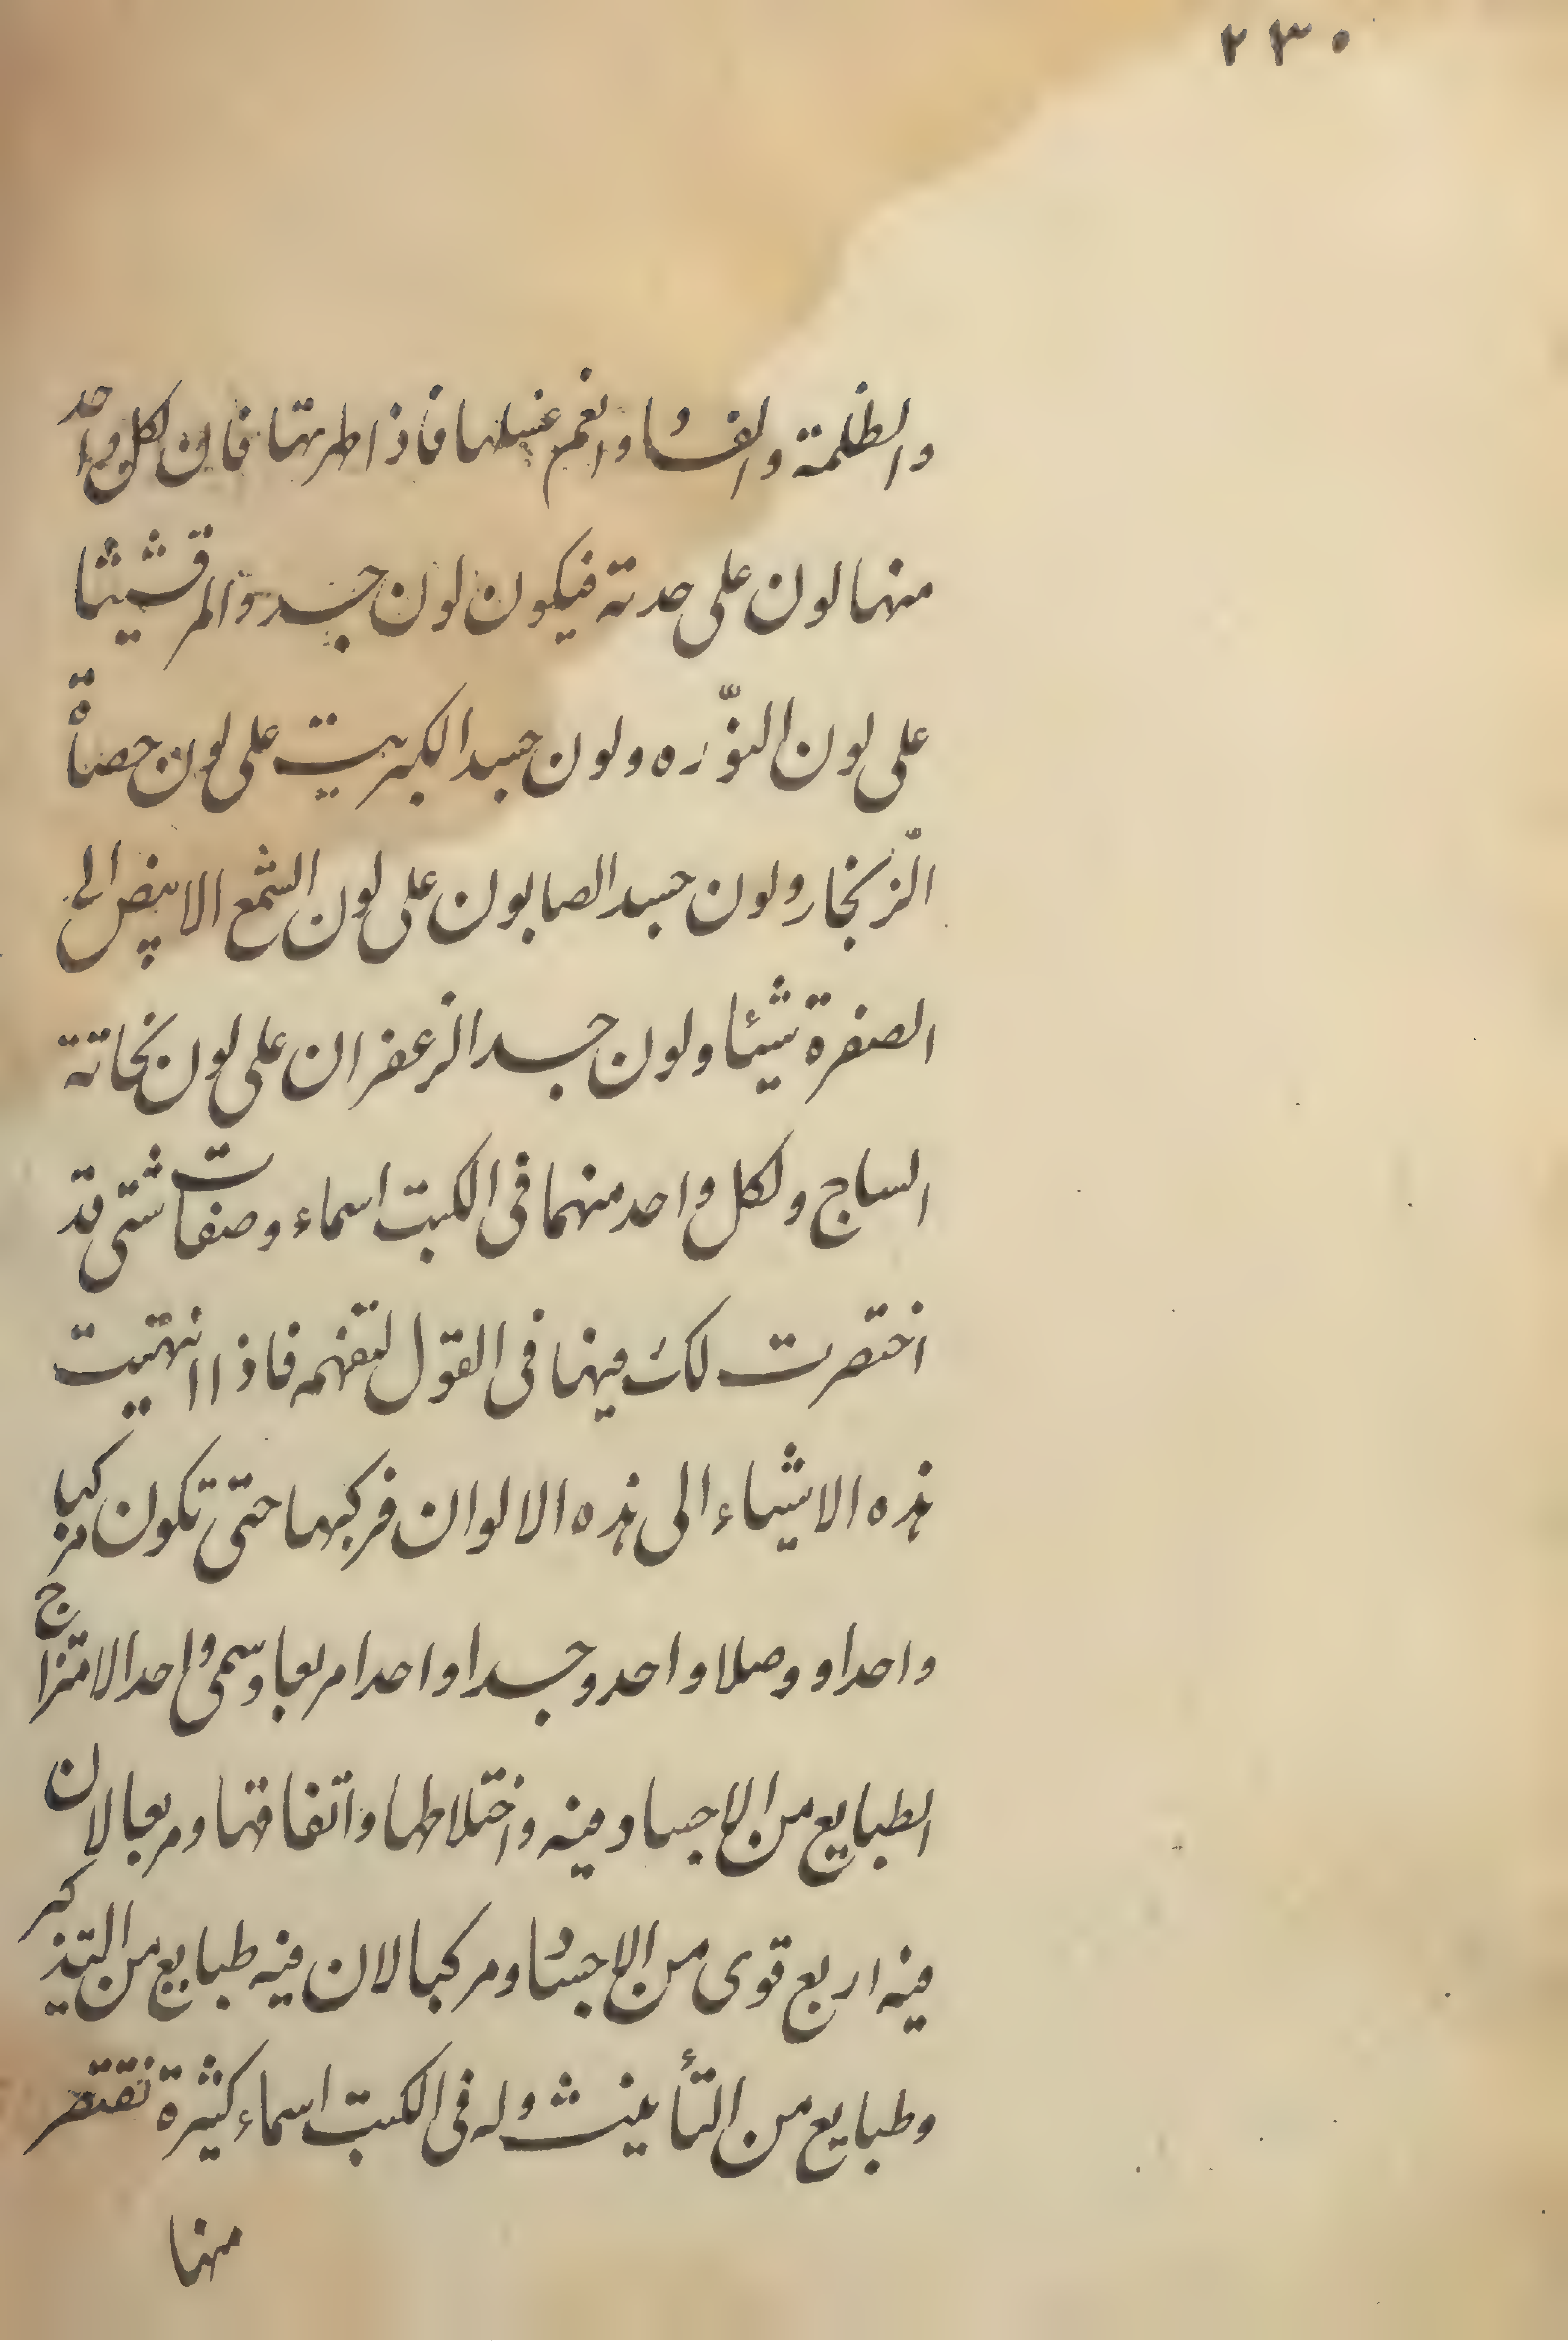 ٢٣٠
والظلمة والفساد وانعم غسلها فاذا طهرتها فان لكل واحد
منها لون على حدته فيكون لون جسد والمرقشيثا
على لون النّوره ولون جسد الكبريت على لون حصاة
الزّنجار ولون جسد الصابون على لون الشمع الابيض الى
الصفرة شيئا ولون جسد الزعفران على لون نحاتة
الساج ولكل واحد منهما فى الكتب اسماء وصفات شتى قد
اختصرت لك فيها فى القول لتفهمه فاذا انتهيت
هذه الاشياء الى هذه الالوان فركبها حتى تكون مركبا
واحدا ووصلا واحد وجسدا واحدا مربعا وسمى واحد الامتزاج
الطبايع من الاجساد فيه واختلاطها واتفاقها ومربعا لان
فيه اربع قوى من الاجساد ومركبا لان فيه طبايع من التذكير
وطبايع من التأنيث وله فى الكتب اسماء كثيرة نقتصر
منها